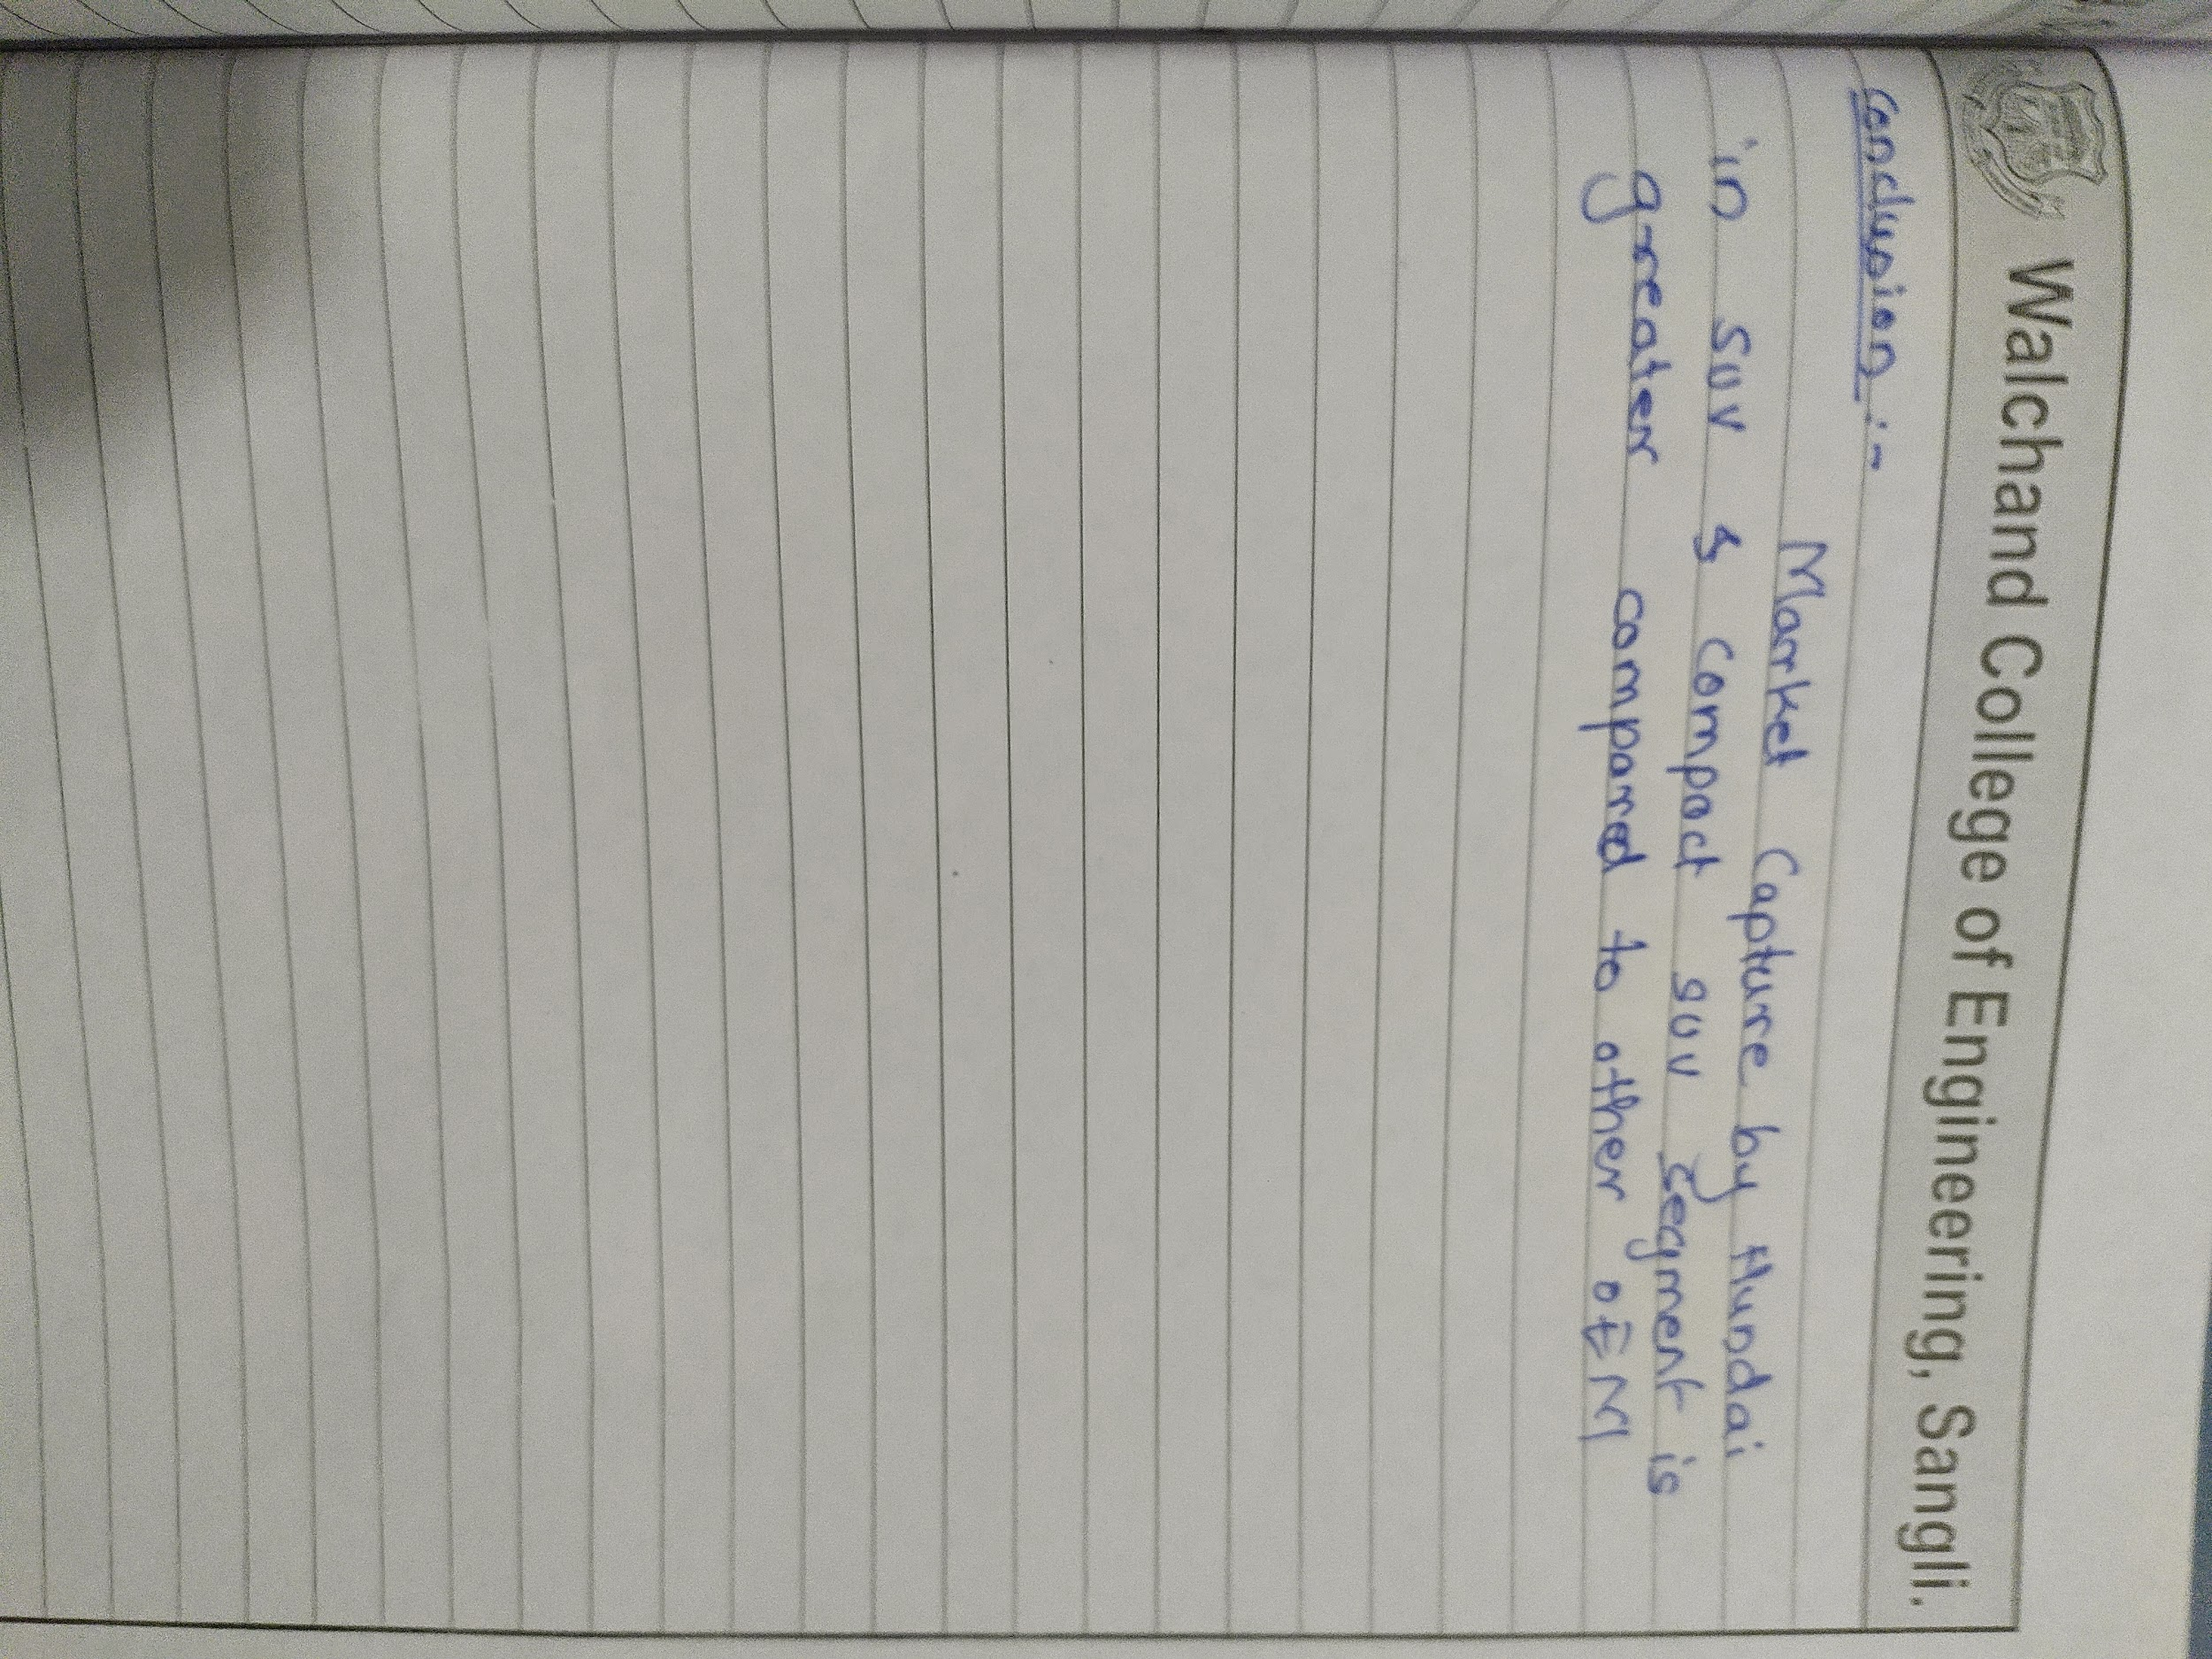 Walchand College of Engineering, Sangli.
Conclusion :-
Market Capture by Hundai
in SUV & Compact SUV Segment is
greater compared to other OEM